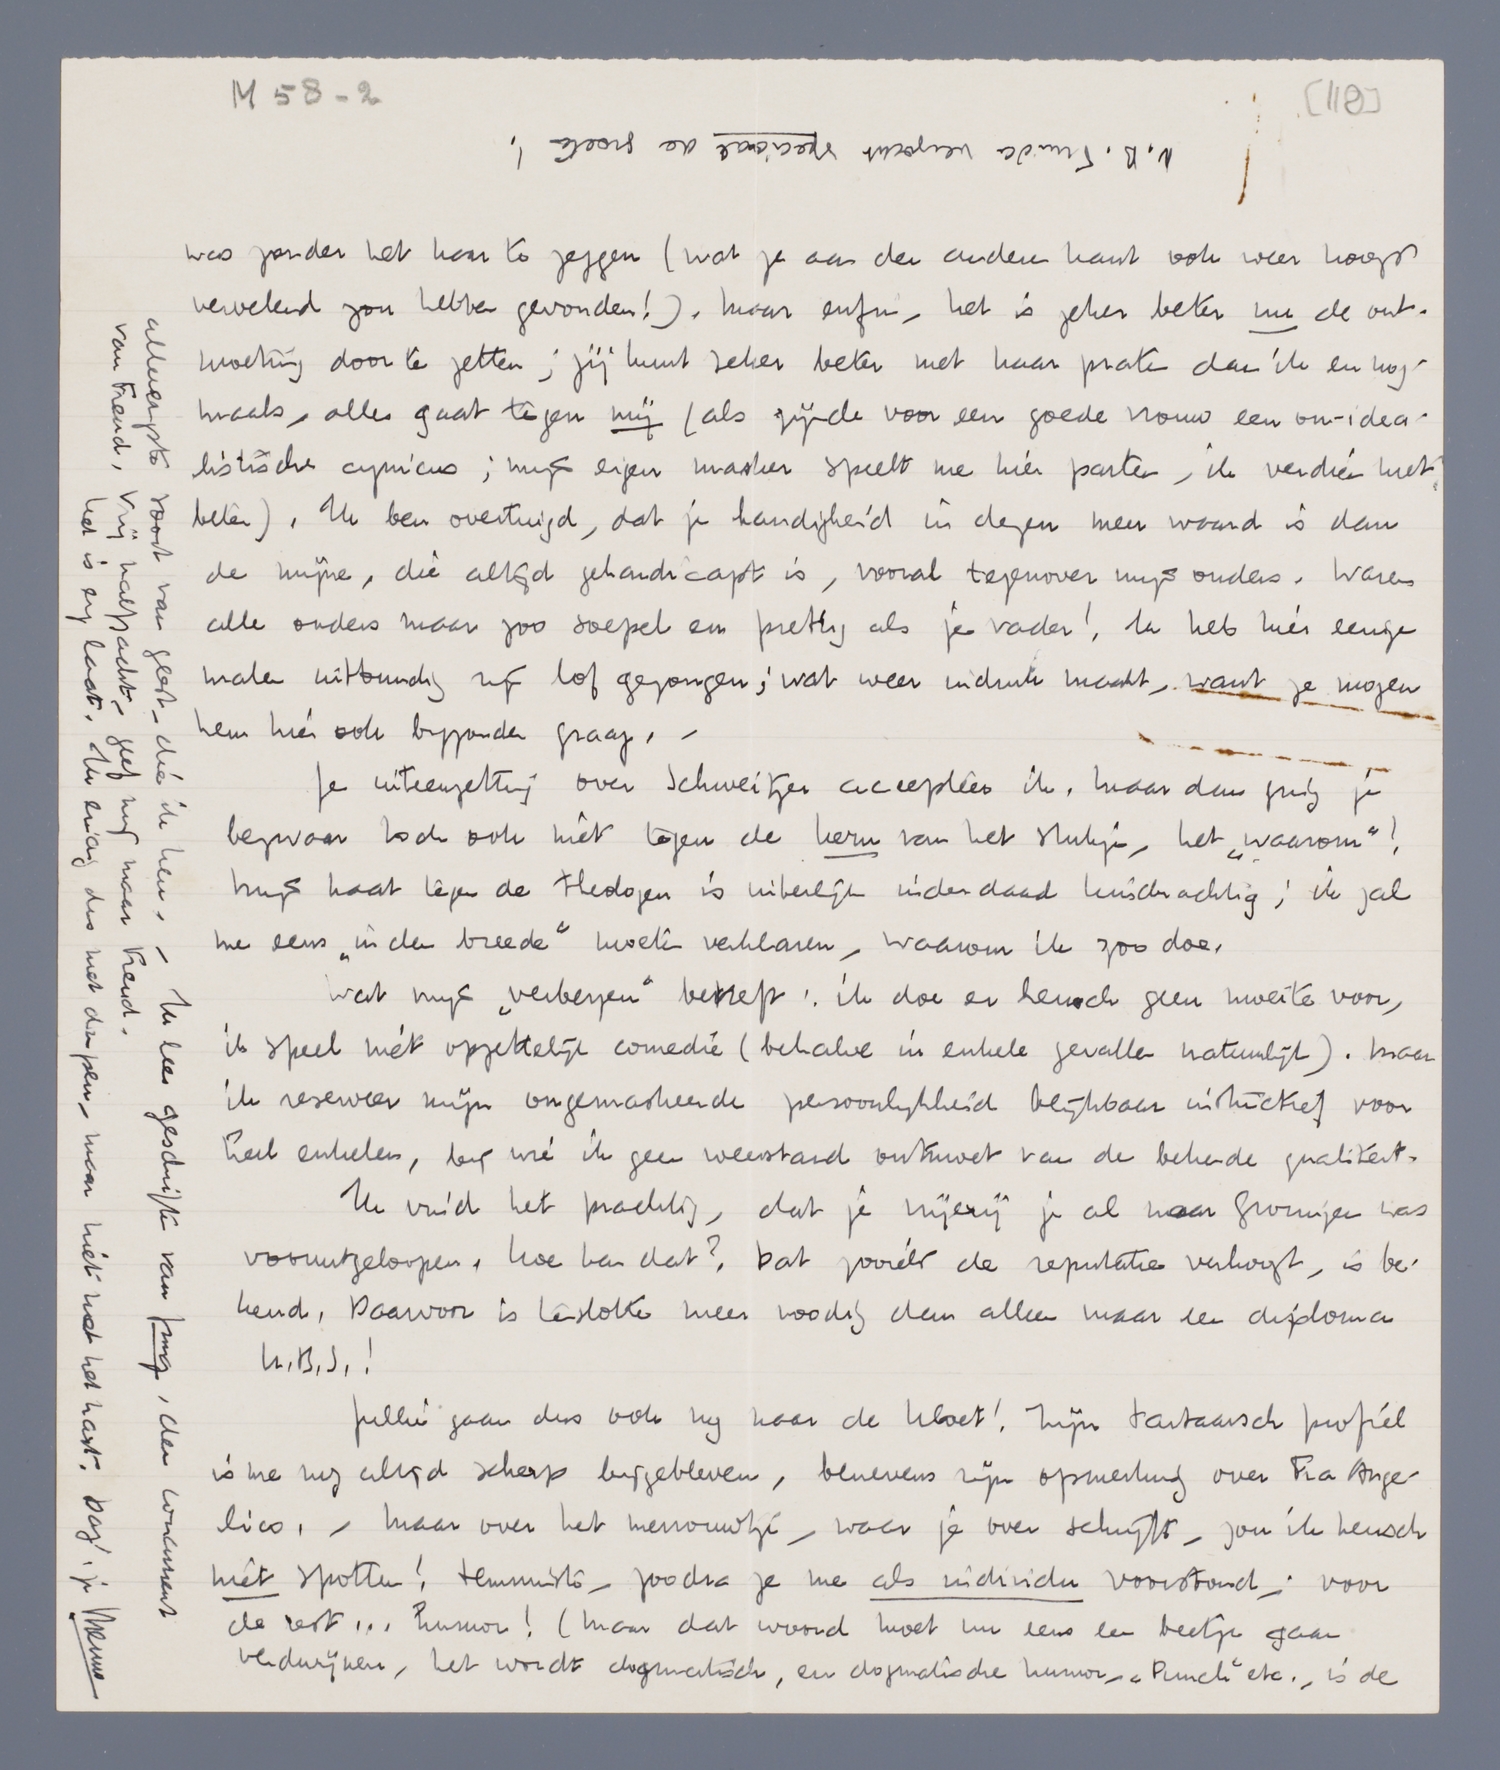 M 58-2
[118]
N.B. Truida verzoekt speciaal de groeten!
was zonder het haar te zeggen (wat je aan den anderen kant ook weer hoogst
vervelend zou hebben gevonden!). Maar enfin, het is zeker beter nu de ont-
moeting door te zetten; jij kunt zeker beter met haar praten dan ik en nog-
maals, alles gaat tegen mij (als zijnde voor een goede vrouw een on-idea-
listische cynicus; mijn eigen masker speelt me hier parten, ik verdien niet
beter). Ik ben overtuigd, dat je handigheid in dezen meer waard is dan
de mijne, die altijd gehandicapt is, vooral tegenover mijn ouders. Waren
alle ouders maar zoo soepel en prettig als je vader! Ik heb hier eenige
malen uitbundig zijn lof gezongen; wat weer indruk maakt, want ze mogen
hem hier ook bijzonder graag. -
Je uiteenzetting over Schweitzer accepteer ik. Maar dan ging je
bezwaar toch ook niet tegen de kern van het stukje, het „waarom"!
Mijn haat tegen de theologen is uiterlijk inderdaad kinderachtig; ik zal
me eens „in den breede" moeten verklaren, waarom ik zoo doe.
Wat mijn „verbergen" betreft: ik doe er heusch geen moeite voor,
ik speel niet opzettelijk comedie (behalve in enkele gevallen natuurlijk). Maar
ik reserveer mijn ongemaskeerde persoonlijkheid blijkbaar instinctief voor
heel enkelen, bij wie ik geen weerstand ontmoet van de bekende qualiteit.
Ik vind het prachtig, dat je vrijerij je al naar Groningen was
vooruitgeloopen. Hoe kan dat? Dat zooiets de reputatie verhoogt, is be-
kend. Daarvoor is tenslotte meer noodig dan alleen maar een diploma
H.B.S.!
Jullie gaan dus ook nog naar de Kloet! Zijn tartaarsch profiel
is me nog altijd scherp bijgebleven, benevens zijn opmerking over Fra Ange-
lico. - Maar over het mevrouwtje, waar je over schrijft, zou ik heusch
niet spotten! Tenminste, zoodra ze me als individu voorstond; voor
de rest... humor! (Maar dat woord moet nu eens een beetje gaan
verdwijnen, het wordt dogmatisch, en dogmatische humor, „Punch" etc., is de
allerergste soort van geest, die ik ken. - Ik lees geschriften van Jung, den concurrent
van Freud. Vrij halfzacht, geef mij maar Freud.
Het is erg laat. Ik eindig dus met de pen, maar niet met het hart. Dag! je Menno